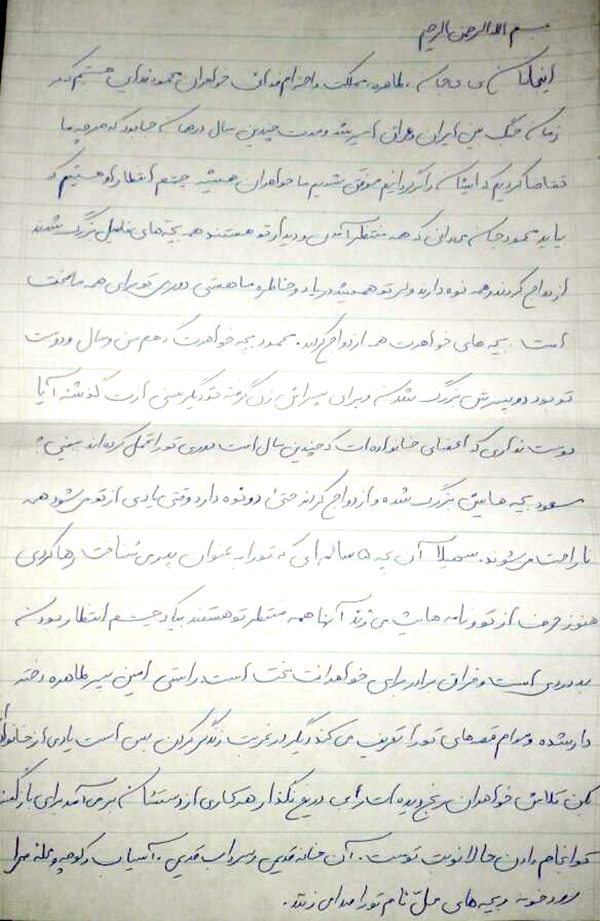 بسم الله الرحمن الرحیم
اینجانبان بی بی جان، طاهره، مملکت و احترام فدائی خواهران محمود فدایی هستیم که
زمان جنگ بین ایران و عراق اسیر شد و مدت چندین سال در همان جا بود که هر چه ما
تقاضا کردیم که ایشان را موفق نشدیم ما خواهران همیشه چشم انتظار او هستیم که
بیاید محمود جان می دانی که همه منتظر آمدن و دیدار تو هستند همه بچه های فامیل بزرگ شدند
ازدواج کردند و همه نوه دارند ولی تو همیشه در یاد و خاطره ما هستی دوری تو برای همه ما سخت
است. بچه های خواهرت همه ازدواج کردند. محمود بچه خواهرت که هم سن و سال و دوست
تو بود دو پسرش بزرگ شدن و برای پسرانش زن گرفته تو دیگر سنی ازت گذشته آیا
دوست نداری که اعضای خانواده ات که چندین سال است دوری تو را تحمل کرده اند ببینی؟
مسعود بچه هایش بزرگ شده و ازدواج کردند حتی دو نوه دارد وقتی یادی از تو می شود همه
ناراحت می شوند. سهیلا آن بچه ۵ ساله ای که تو را به عنوان پدر می شناخت رها کردی
هنوز حرف از تو و نامه هایت می زند آنها همه منتظر تو هستند بیا که چشم انتظار بودن
بد دردی است و فراق برادر برای خواهر سخت است راستی امین پسر طاهره دختر
دار شده و مدام قصه های تو را تعریف می کند دیگر در غربت زندگی کردن بس است یادی از خانواده
کن تلاش خواهران رنجدیده ات را بی دریغ نگذار هر کاری از دستشان بر می آمد برای بازگشت
تو انجام دادن حالا نوبت توست. آن خانه قدیمی و سرداب قدیمی، آسیاب و کوچه و محله
رودخونه و بچه های محل نام تو را صدا می زنند.